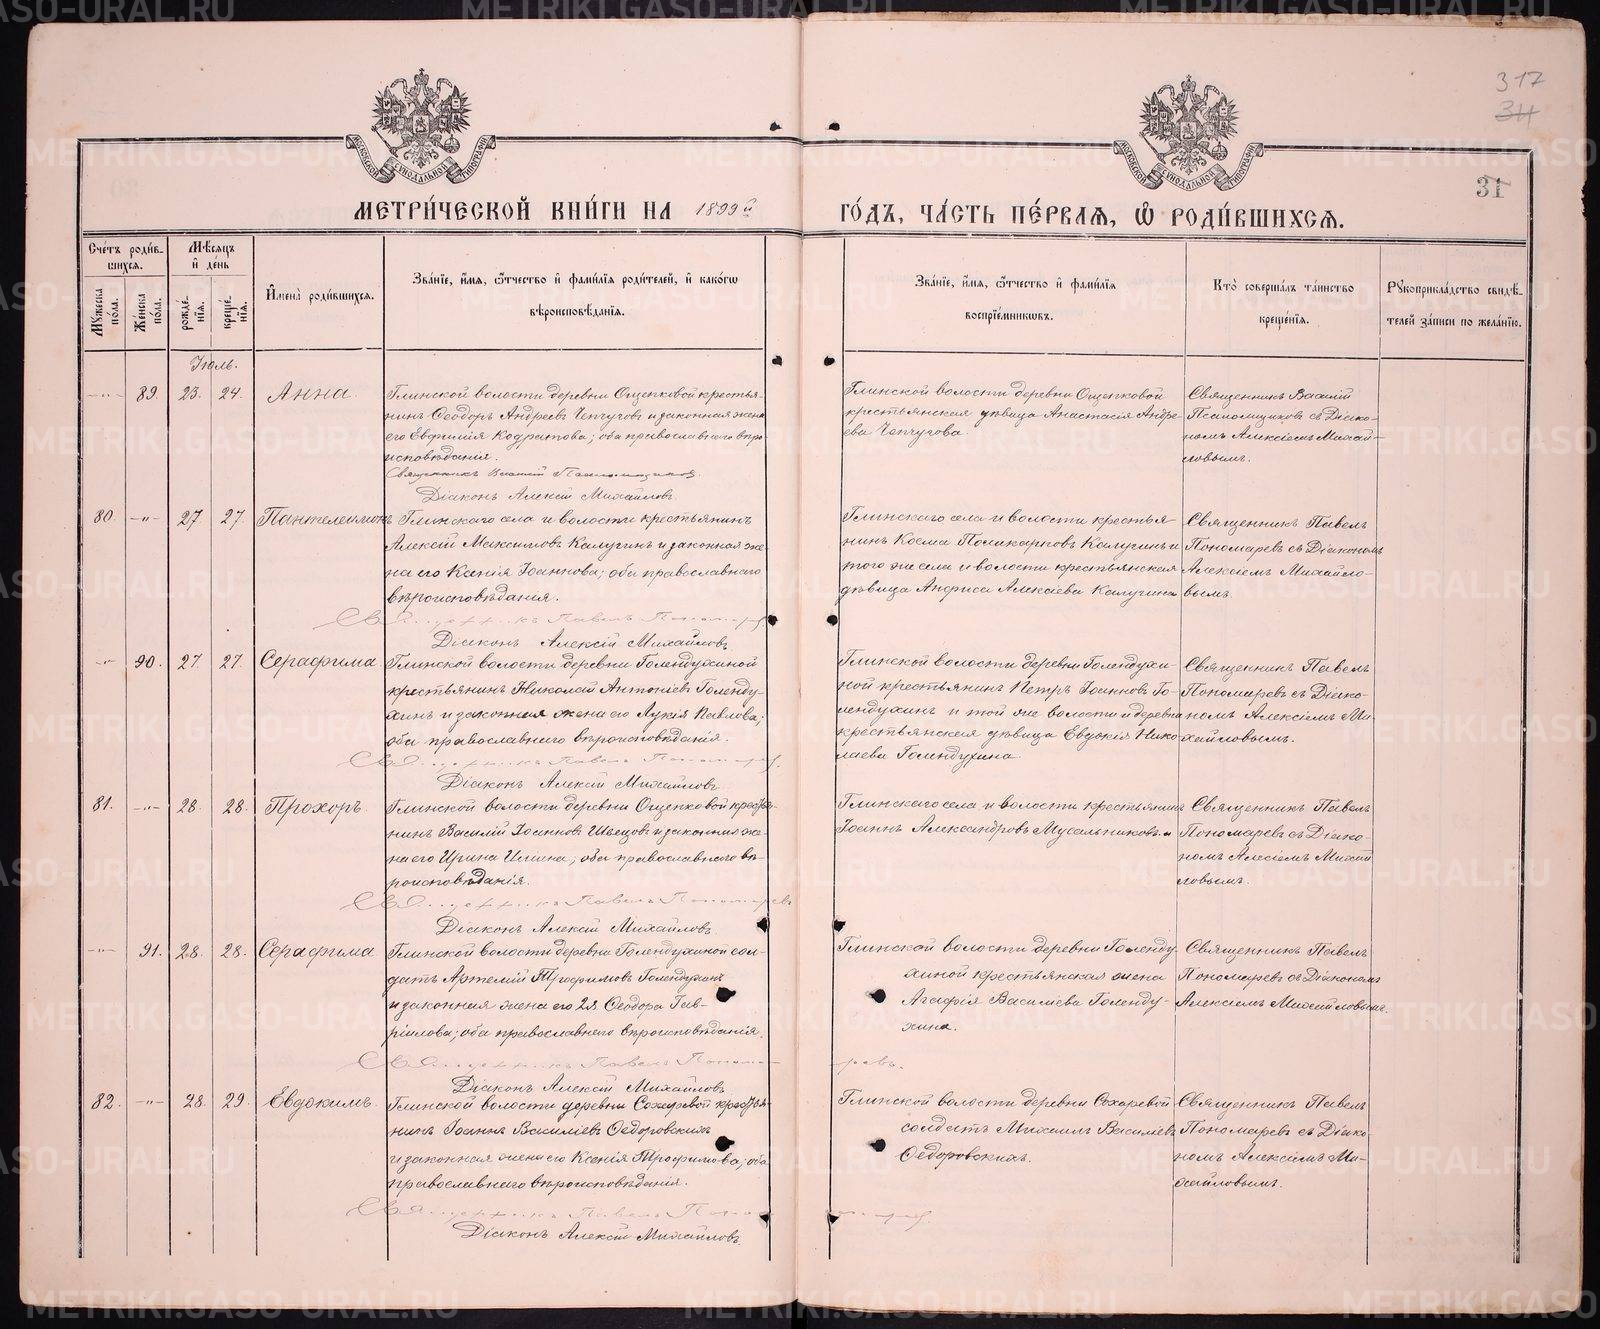 317
34
31
МОСКОВСКОЙ СУНОДАЛЬНОЙ ТИПОГРАФІИ
МОСКОВСКОЙ СУНОДАЛЬНОЙ ТИПОГРАФІИ
МЕТРИ́ЧЕСКОЙ КНИ́ГИ НА 1899й ГО́ДЪ, ЧА́СТЬ ПЕ́РВАѦ, Ѡ҆ РОДИ́ВШИХСѦ.
Сче́тъ роди́в-
шихсѧ.
Мꙋжеска по́ла.
Же́нска по́ла.
Мѣ́сяцъ
и҆ де́нь
рожде́нїѧ.
креще́нїѧ.
И҆мена̀ роди́вшихсѧ.
Зва́нїе, и҆́мѧ, ѻ҆́тчество и҆ фами́лїѧ роди́телей, и҆ како́гѡ
вѣроисповѣ́данїѧ.
Зва́нїе, и҆́мѧ, ѻ҆́тчество и҆ фами́лїѧ
воспрїе́мникѡвъ.
Кто̀ соверша́лъ та́инство
креще́нїѧ.
Рꙋкоприкла́дство свидѣ́-
телей за́писи по жела́нїю.
Іюль.
—"— 89. 23. 24. Анна.
Глинской волости деревни Ощепковой крестья-
нинъ Ѳеодоръ Андреевъ Чепчуговъ и законная жена
его Евфимія Кодратова; оба православнаго вѣро-
исповѣданія.
Священникъ Василій Псаломщиковъ
Діаконъ Алексій Михайловъ
Глинской волости деревни Ощепковой
крестьянская дѣвица Анастасія Андре-
ева Чепчугова.
Священникъ Василій
Псаломщиковъ съ Діако-
номъ Алексіемъ Михай-
ловымъ.
80. —"— 27. 27. Пантелеимонъ
Глинскаго села и волости крестьянинъ
Алексій Максимовъ Калугинъ и законная же-
на его Ксенія Іоаннова; оба православнаго
вѣроисповѣданія.
Священникъ Павелъ Пономаревъ
Діаконъ Алексій Михайловъ
Глинскаго села и волости крестья-
нинъ Косма Поликарповъ Калугинъ и
того же села и волости крестьянская
дѣвица Анфиса Алексѣева Калугина
Священникъ Павелъ
Пономаревъ съ Діакономъ
Алексіемъ Михайло-
вымъ.
—"— 90. 27. 27. Серафима
Глинской волости деревни Голендухиной
крестьянинъ Николай Антоніевъ Голенду-
хинъ и законная жена его Лукія Павлова;
оба православнаго вѣроисповѣданія.
Священникъ Павелъ Пономарев.
Діаконъ Алексій Михайловъ
Глинской волости деревни Голендухи-
ной крестьянинъ Петръ Іоанновъ Го-
лендухинъ и той же волости и деревни
крестьянская дѣвица Евдокія Нико-
лаева Голендухина.
Священникъ Павелъ
Пономаревъ съ Діако-
номъ Алексіемъ Ми-
хайловымъ.
81. —"— 28. 28. Прохоръ.
Глинской волости деревни Ощепковой крестья-
нинъ Василій Іоанновъ Швецовъ и законная же-
на его Ирина Ильина; оба православнаго вѣ-
роисповѣданія.
Священникъ Павелъ Пономаревъ
Діаконъ Алексій Михайловъ.
Глинскаго села и волости крестьянинъ
Іоаннъ Александровъ Мусальниковъ.
Священникъ Павелъ
Пономаревъ съ Діако-
номъ Алексіемъ Михай
ловымъ.
—"— 91. 28. 28. Серафима
Глинской волости деревни Голендухиной сол-
датъ Артемій Трофимовъ Голендухинъ
и законная жена его 2я Ѳеодора Гав-
ріилова; оба православнаго вѣроисповѣданія.
Священникъ Павелъ Пономаревъ.
Діаконъ Алексій Михайловъ
Глинской волости деревни Голенду-
хиной крестьянская жена
Агафія Василіева Голенду-
хина.
Священникъ Павелъ
Пономаревъ съ Діакономъ
Алексіемъ Михайловымъ.
82. —"— 28. 29. Евдокимъ.
Глинской волости деревни Сохаревой крестья-
нинъ Іоаннъ Василіевъ Ѳедоровскихъ
и законная жена его Ксенія Трофимова; оба
православнаго вѣроисповѣданія.
Священникъ Павелъ Пономарев.
Діаконъ Алексій Михайловъ.
Глинской волости деревни Сохаревой
солдатъ Михаилъ Василіевъ
Ѳедоровскихъ.
Священникъ Павелъ
Пономаревъ съ Діако-
номъ Алексіемъ Ми-
хайловымъ.
METRIKI.GASO-URAL.RU